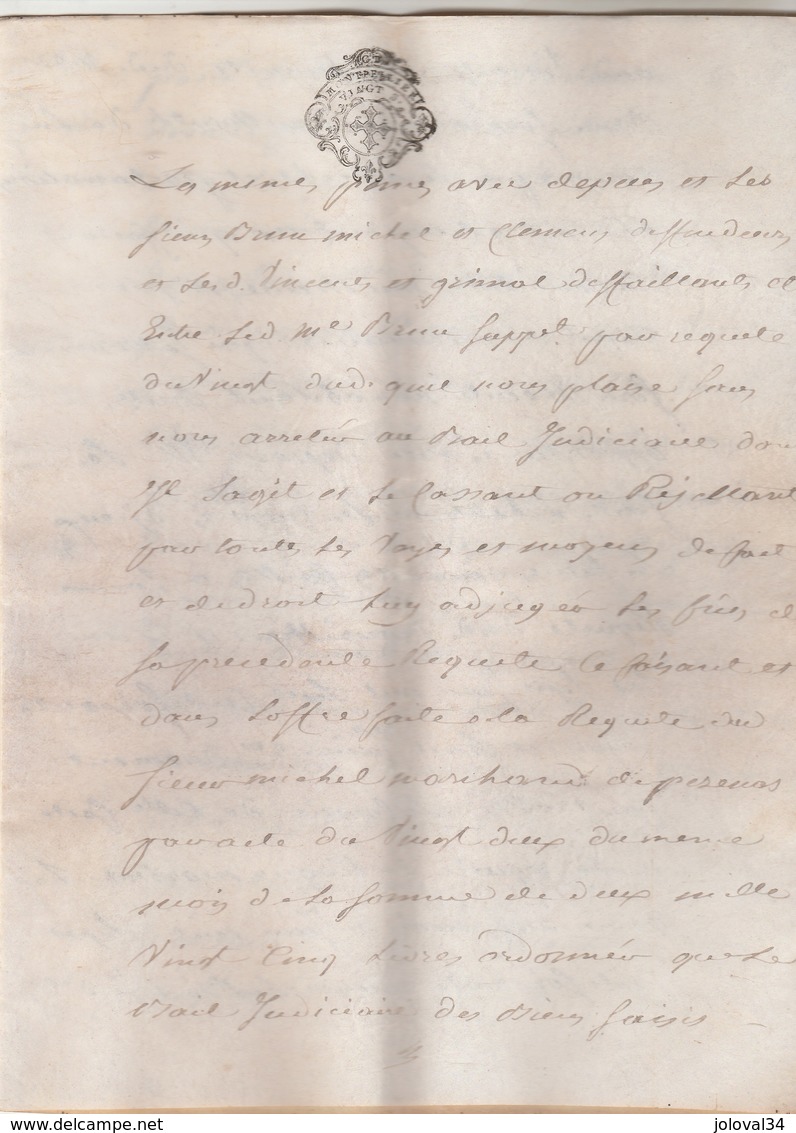 GT
MONTPELLIER
VINGT
Les memes fins avec depens et Les
Sieurs Brun michel et Clemens deffendeurs
et Led. Vincens et grimal deffaillants et
Entre Led. Me Brun Supplt. par requete
du Vingt dud. quil nous plaise sans
nous arreter au Bail Judiciaire dont
Il Sagit et Le Cassant ou Rejettant
par toutes Les Voyes et moyens de fait
et de droit Luy adjuger Les fins de
Sa precedante Requete Ce faisant et
dans Loffre faite a la Requete du
Sieur michel marchand de pezenas
par acte du Vingt deux du meme
mois de La Somme de deux mille
Vingt Cinq Livres ordonner que Le
Bail Judiciaire des Biens Saisis
joloval34